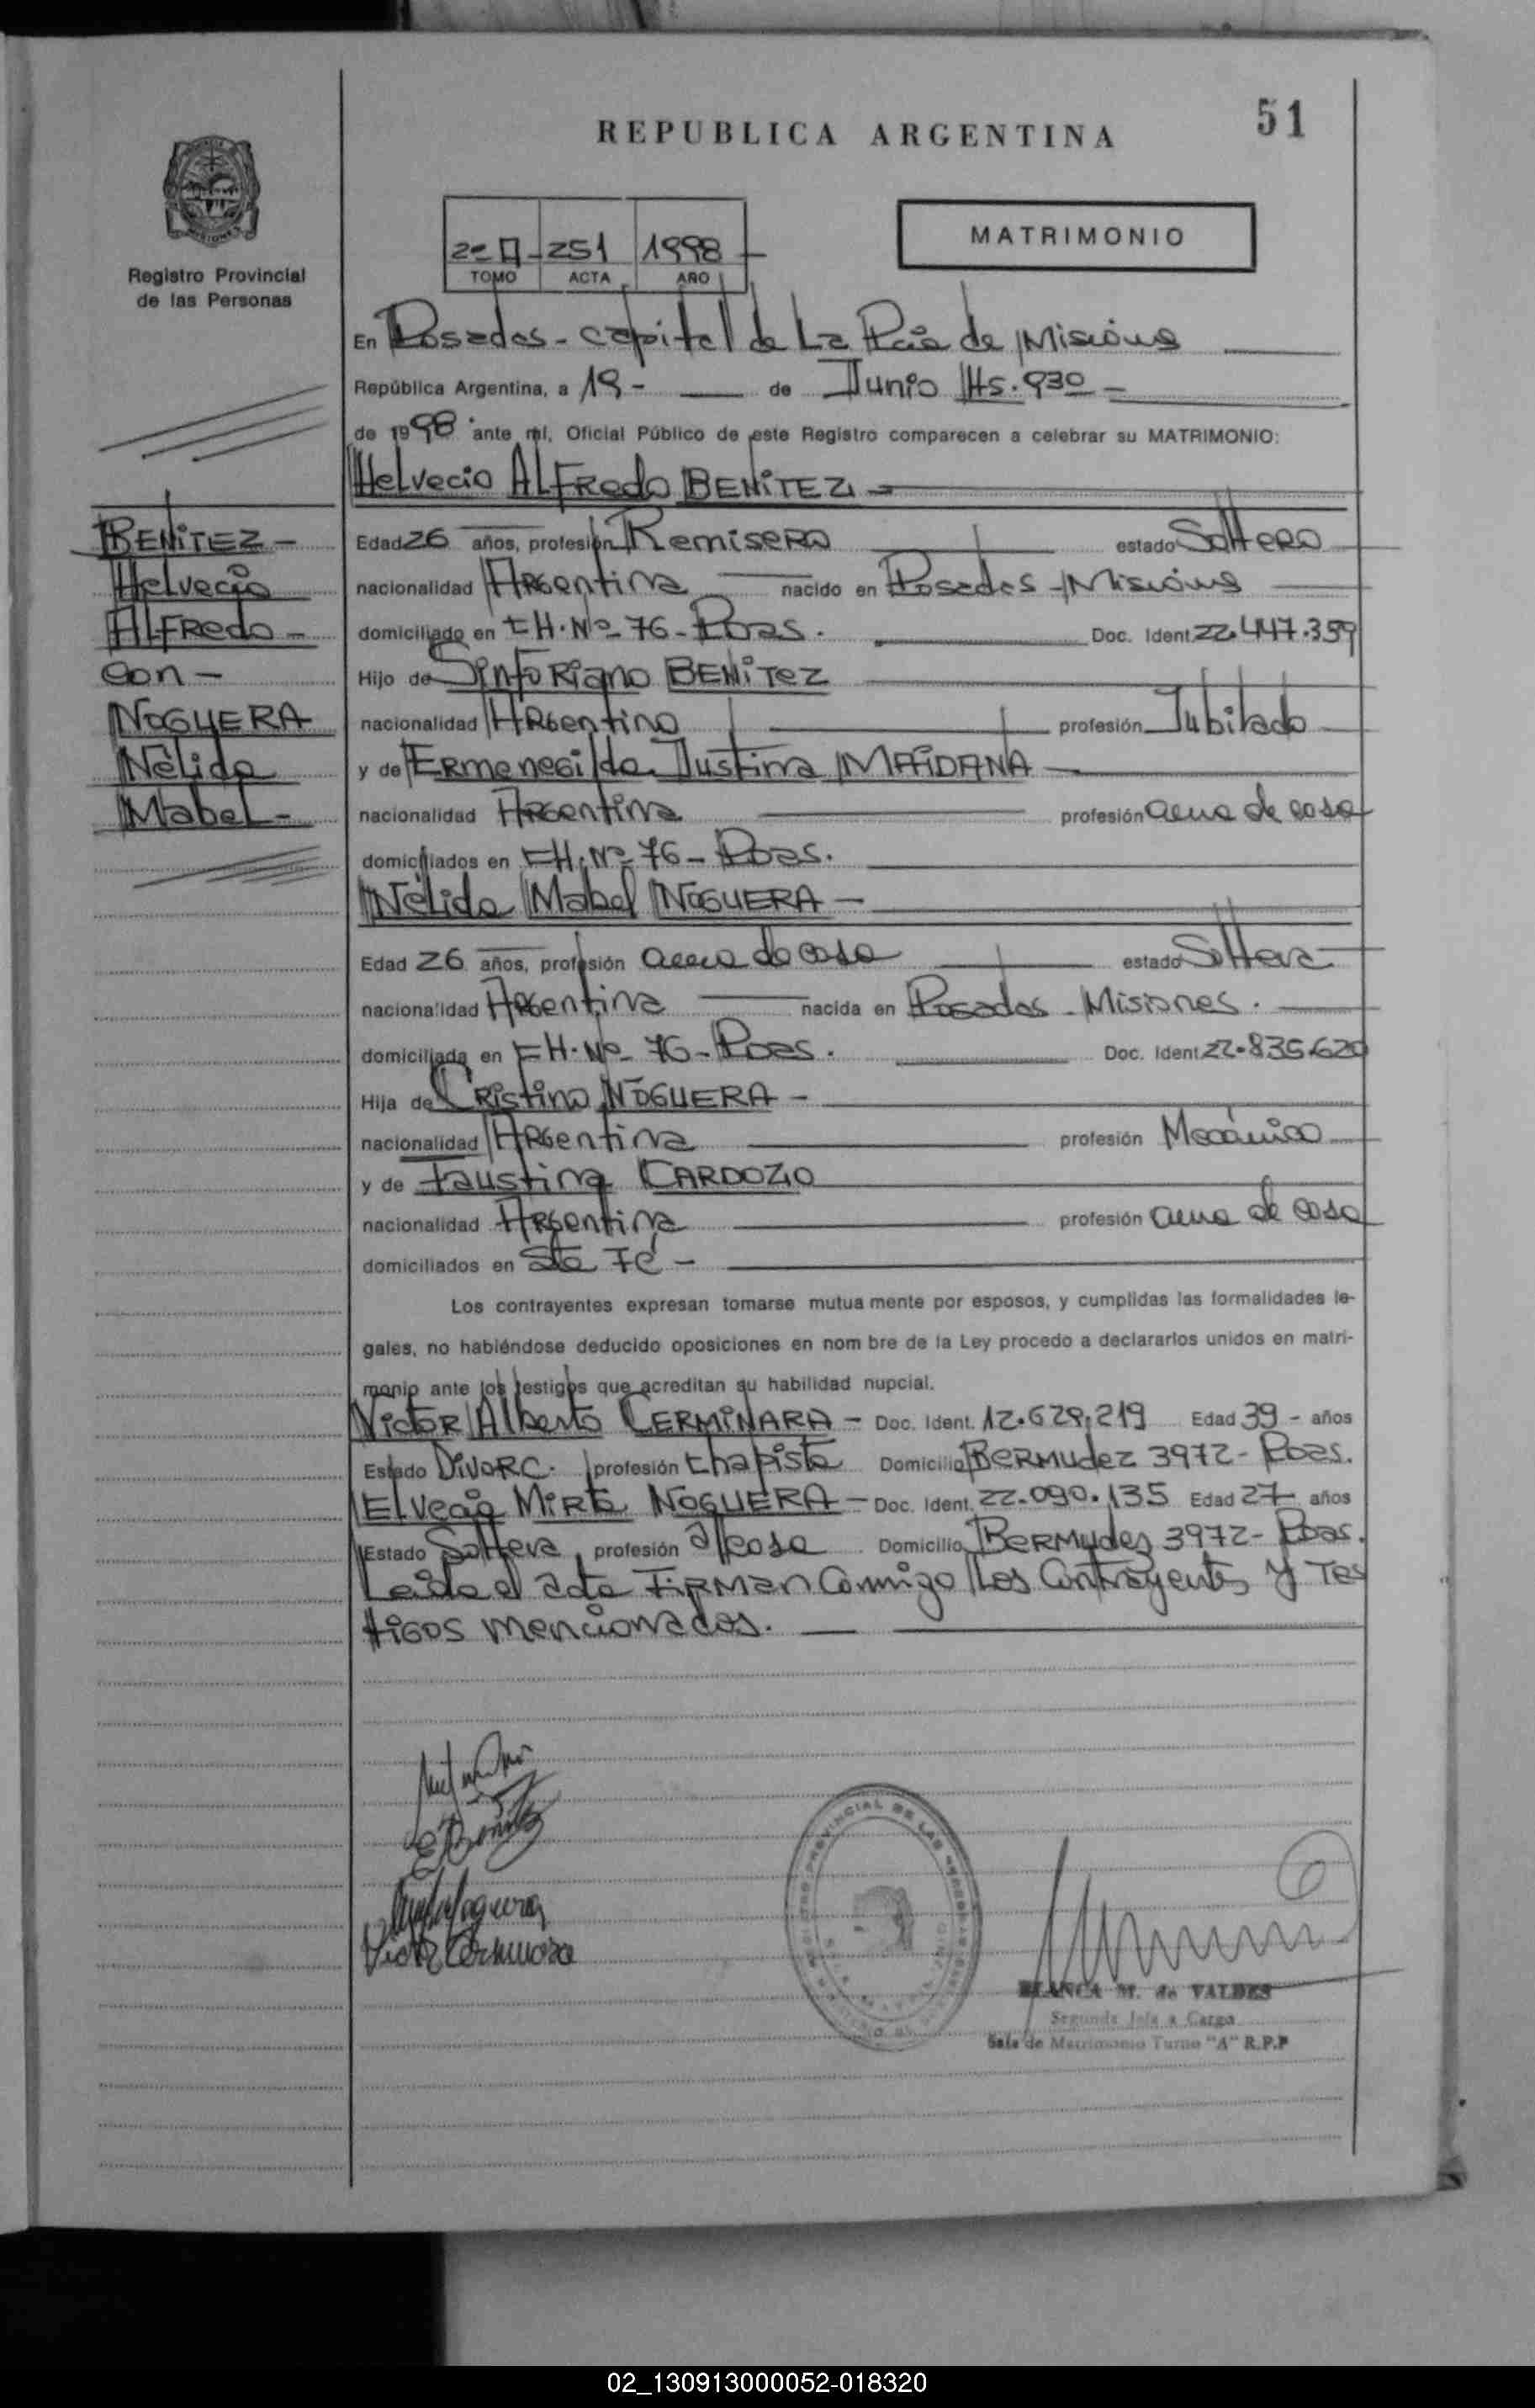 51
REPUBLICA ARGENTINA
Registro Provincial
de las Personas
MATRIMONIO
251 1998
TOMO ACTA AÑO
En Posadas - Capital de La Pcia de Misiones
República Argentina, a 19 - de Junio Hs. 930 -
de 1998 ante mí, Oficial Público de este Registro comparecen a celebrar su MATRIMONIO:
Helvecio Alfredo BENITEZ -
BENITEZ -
Helvecio
Alfredo -
Con -
NOGUERA
Nélida
Mabel -
Edad 26 años, profesión Remisero estado Soltero
nacionalidad Argentina nacido en Posadas - Misiones
domiciliado en CH. Nº 76 - Pdas. Doc. Ident. 22.447.359
Hijo de Sinforiano BENITEZ
nacionalidad Argentino profesión Jubilado
y de Ermenegilda Justina MAIDANA -
nacionalidad Argentina profesión ama de casa
domiciliados en CH. Nº 76 - Pdas.
Nélida Mabel NOGUERA -
Edad 26 años, profesión ama de casa estado Soltera
nacionalidad Argentina nacida en Posadas - Misiones.
domiciliada en CH. Nº 76 - Pdas. Doc. Ident. 22.835.620
Hija de Cristino NOGUERA -
nacionalidad Argentina profesión Mecánico
y de Faustina CARDOZO
nacionalidad Argentina profesión ama de casa
domiciliados en Sta Fé -
Los contrayentes expresan tomarse mutua mente por esposos, y cumplidas las formalidades le-
gales, no habiéndose deducido oposiciones en nom bre de la Ley procedo a declararlos unidos en matri-
monio ante los testigos que acreditan su habilidad nupcial.
Victor Alberto CERMINARA - Doc. Ident. 12.629.219 Edad 39 - años
Estado Divorc. profesión chapista Domicilio Bermudez 3972 - Pdas.
Elvecia Mirta NOGUERA - Doc. Ident. 22.090.135 Edad 27 años
Estado Soltera profesión a/casa Domicilio Bermudez 3972 - Pdas.
Leída el acta Firman Conmigo Los Contrayentes y Tes
tigos mencionados.
Victor Cerminara
BLANCA M. de VALDES
Segunda Jefa a Cargo
Sala de Matrimonio Turno "A" R.P.P
02_130913000052-018320